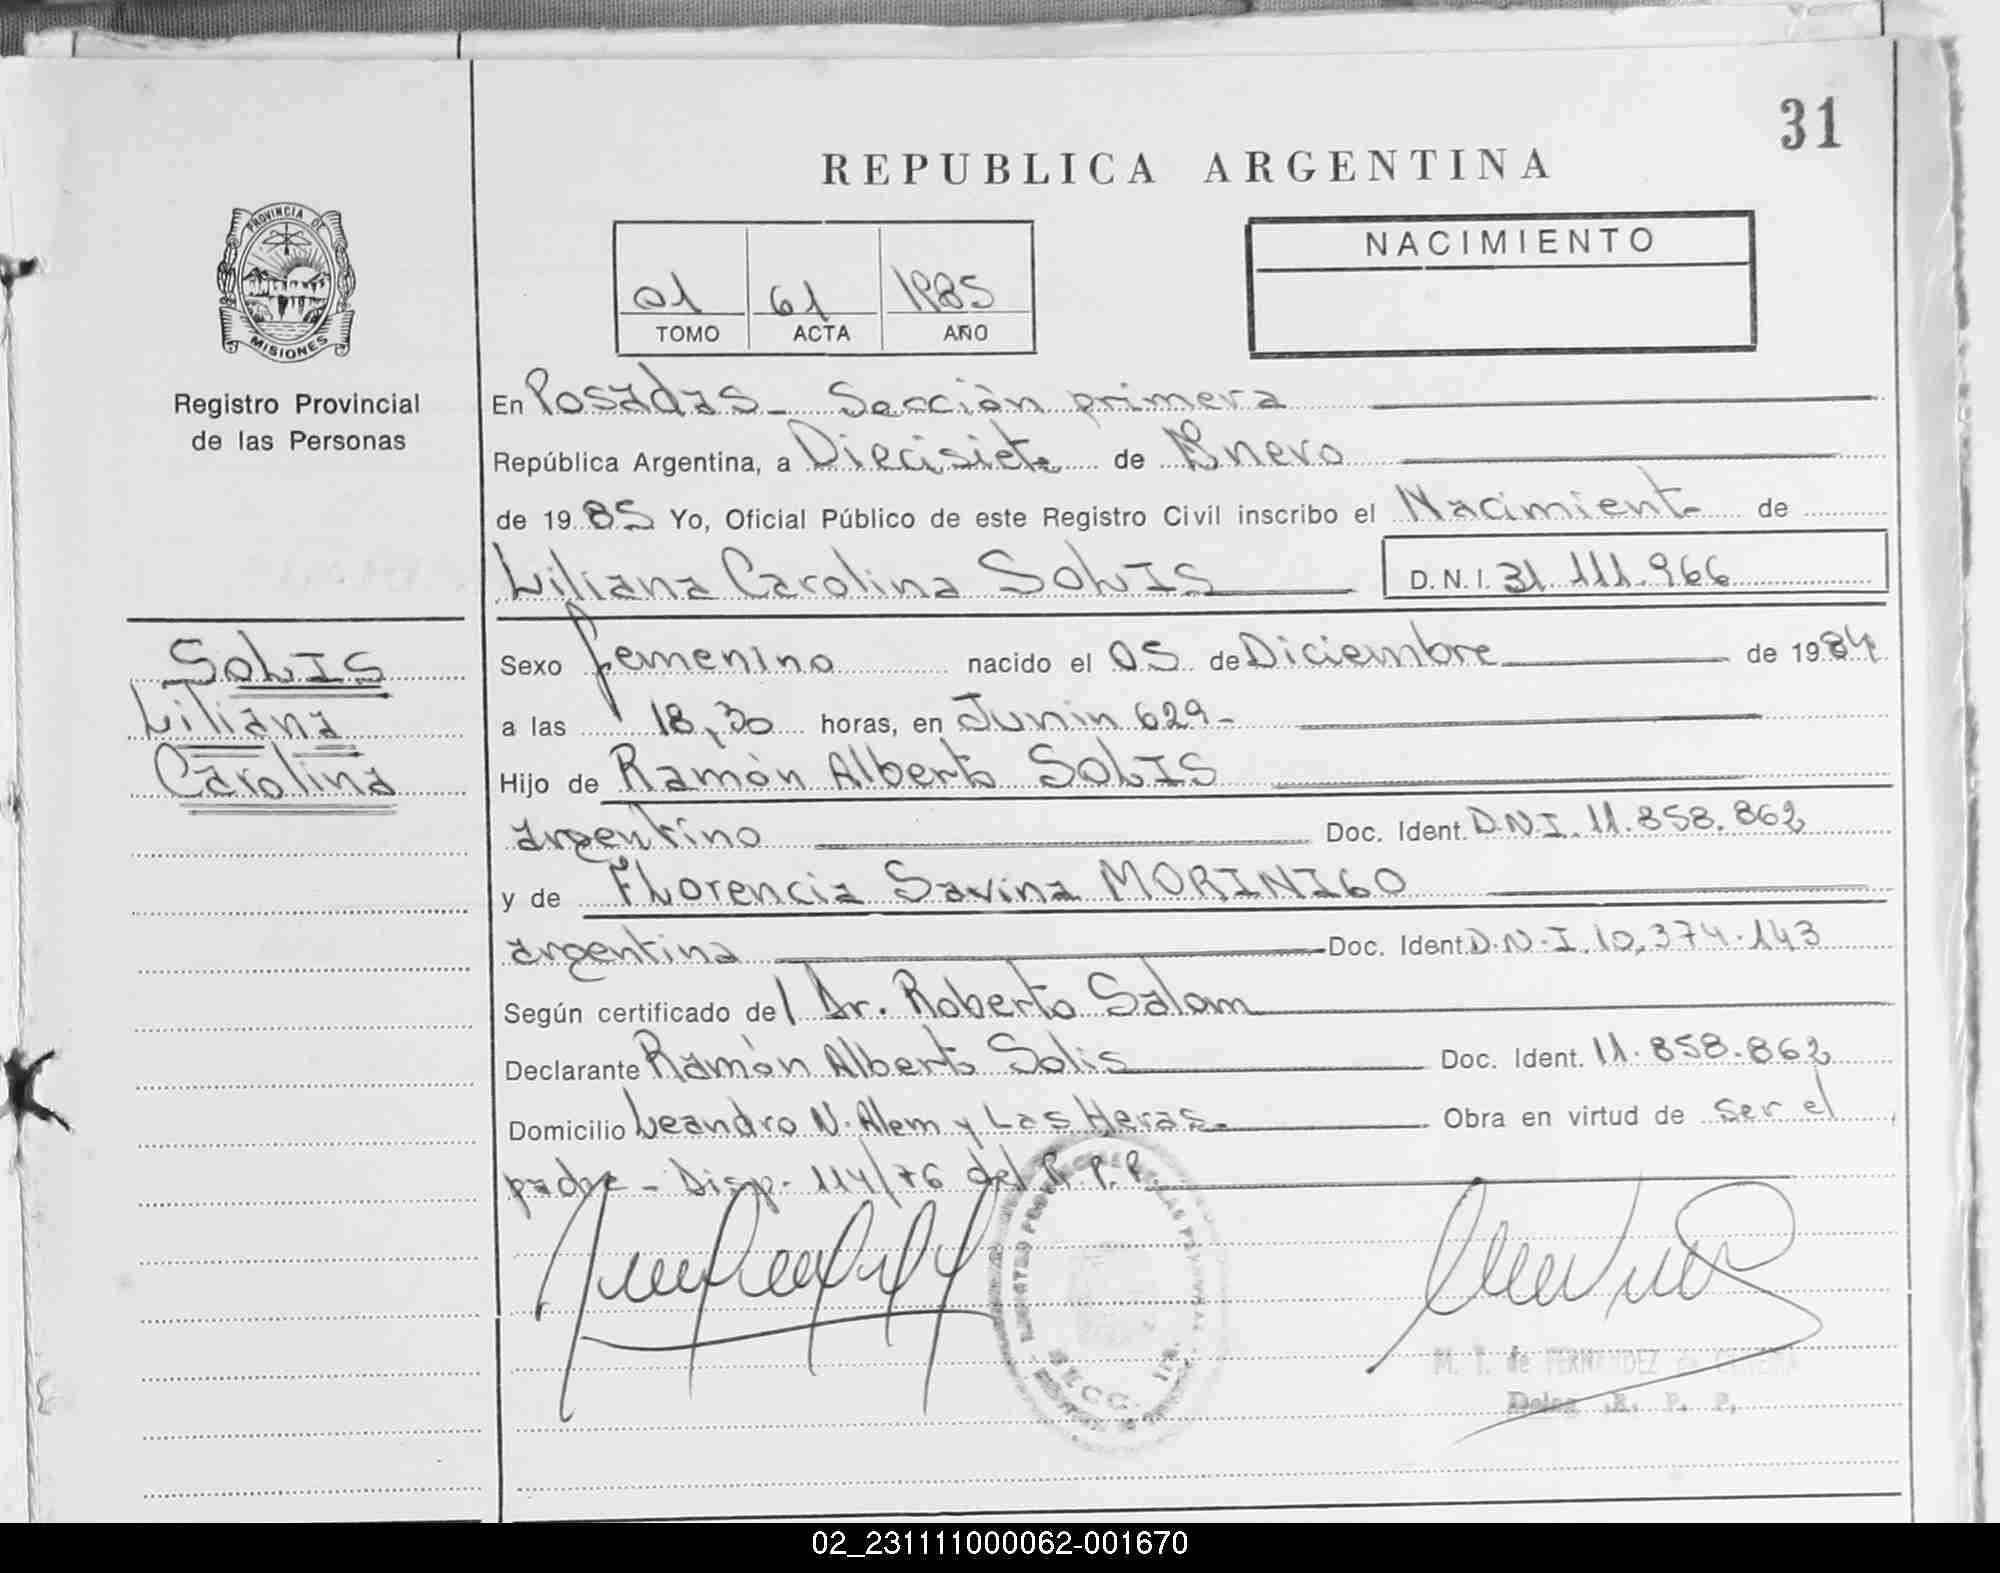 31
REPUBLICA ARGENTINA
PROVINCIA DE
MISIONES
Registro Provincial
de las Personas
01 61 1985
TOMO ACTA AÑO
NACIMIENTO
En Posadas - Sección primera
República Argentina, a Diecisiete de Enero
de 1985 Yo, Oficial Público de este Registro Civil inscribo el Nacimiento de
Liliana Carolina SOLIS D.N.I. 31.111.966
SOLIS
Liliana
Carolina
Sexo femenino nacido el 05 de Diciembre de 1984
a las 18,30 horas, en Junin 629-
Hijo de Ramón Alberto SOLIS
argentino Doc. Ident. D.N.I. 11.858.862
y de Florencia Savina MORINIGO
argentina Doc. Ident. D.N.I. 10.374.143
Según certificado del Dr. Roberto Salom
Declarante Ramón Alberto Solis Doc. Ident. 11.858.862
Domicilio Leandro N. Alem y Las Heras. Obra en virtud de ser el
padre - Disp. 114/76 del R.P.P.
SECC. 1ra.
M. T. de FERNANDEZ de
Deleg. R. P. P.
02_231111000062-001670